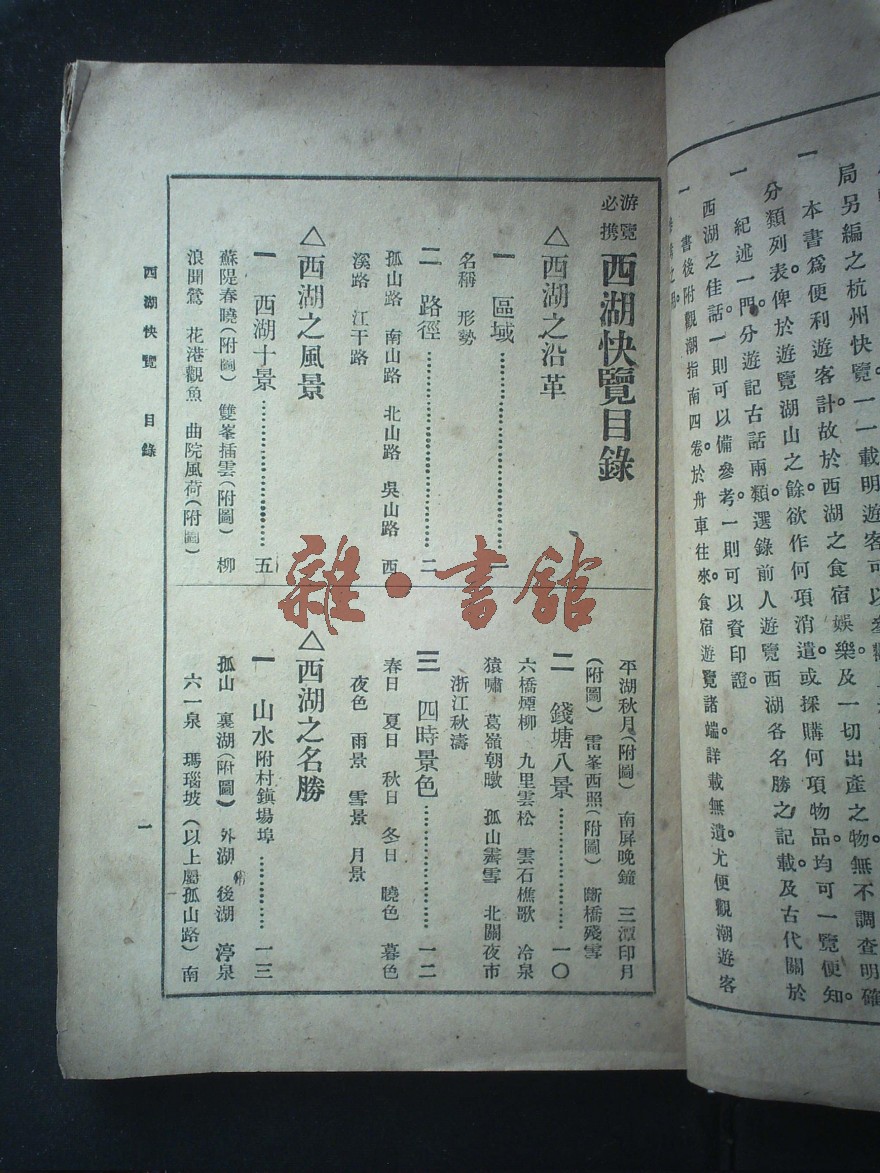 局另編之杭州快覽。一一載明遊客可以參觀
一 本書爲便利遊客計故於西湖之食宿娛樂。及一切出產之物。無不調查明確
分類列表。俾於遊覽湖山之餘。欲作何項消遣。或採購何項物品。均可一覽便知。
一 紀述一門。分遊記古話兩類。選錄前人遊覽西湖各名勝之記載。及古代關於
西湖之佳話。一則可以備參考。一則可以資印證。
一 書後附觀潮指南四卷。於舟車往來。食宿遊覽諸端。詳載無遺。尤便觀潮遊客
游覽必携 西湖快覽目錄
△西湖之沿革
一 區域 一
名稱 形勢
二 路徑 二
孤山路 南山路 北山路 吳山路 西
溪路 江干路
△西湖之風景
一 西湖十景 五
蘇隄春曉(附圖) 雙峯插雲(附圖) 柳
浪聞鶯 花港觀魚 曲院風荷(附圖)
平湖秋月(附圖) 南屏晚鐘 三潭印月
(附圖) 雷峯西照(附圖) 斷橋殘雪
二 錢塘八景 一〇
六橋煙柳 九里雲松 雲石樵歌 冷泉
猿嘯 葛嶺朝暾 孤山霽雪 北關夜市
浙江秋濤
三 四時景色 一二
春日 夏日 秋日 冬日 曉色 暮色
夜色 雨景 雪景 月景
△西湖之名勝
一 山水附村鎮場埠 一三
孤山 裏湖(附圖) 外湖 後湖 渟泉
六一泉 瑪瑙坡 (以上屬孤山路) 南
西湖快覽 目錄
一
雜·書館